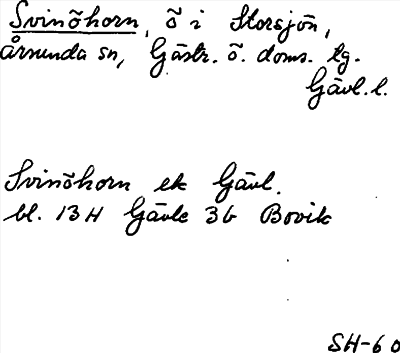 Svinöhorn, ö i Storsjön,
Årsunda sn, Gästr. ö. doms. tg.
Gävl. l.
Svinöhorn ek Gävl.
bl. 13H Gävle 3b Bovik
SH-60